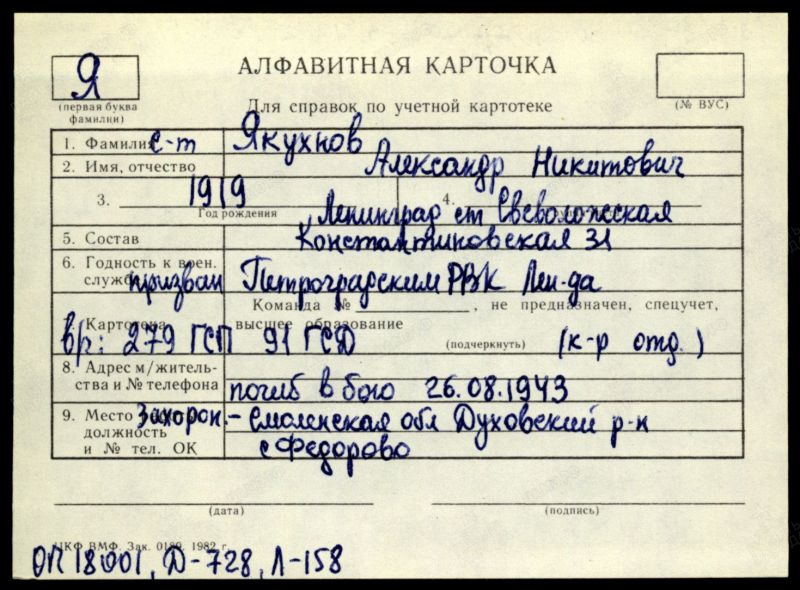 Я
АЛФАВИТНАЯ КАРТОЧКА
(первая буква фамилии)
Для справок по учетной картотеке
(№ ВУС)
1. Фамилия с-т Якухнов
2. Имя, отчество Александр Никитович
3. 1919 4.
Год рождения
Ленинград ст Всеволожская
5. Состав Константиновская 31
6. Годность к воен. службе призван Петроградским РВК Лен-да
Команда № , не предназначен, спецучет,
7. Картотека высшее образование
в/ч: 279 ГСП 91 ГСД (подчеркнуть) (к-р отд.)
8. Адрес м/житель-
ства и № телефона погиб в бою 26.08.1943
9. Место Захорон. - Смоленская обл Духовский р-н
должность
и № тел. ОК с Федорово
(дата) (подпись)
ЦКФ ВМФ. Зак. 0189. 1982 г.
ОП 18001, Д-728, Л-158